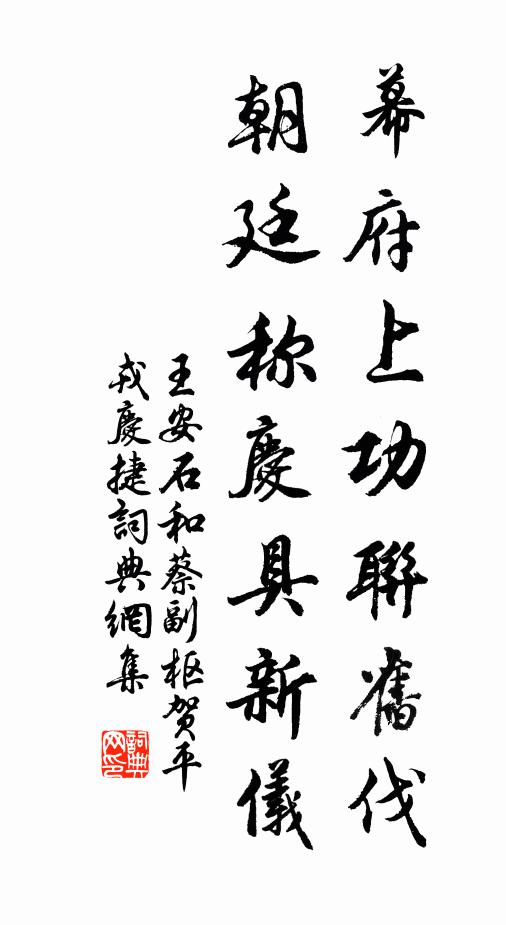 幕府上功聯舊伐
朝廷称慶具新儀
王安石和蔡副枢贺平
戎慶捷詞典網集
詞典网印